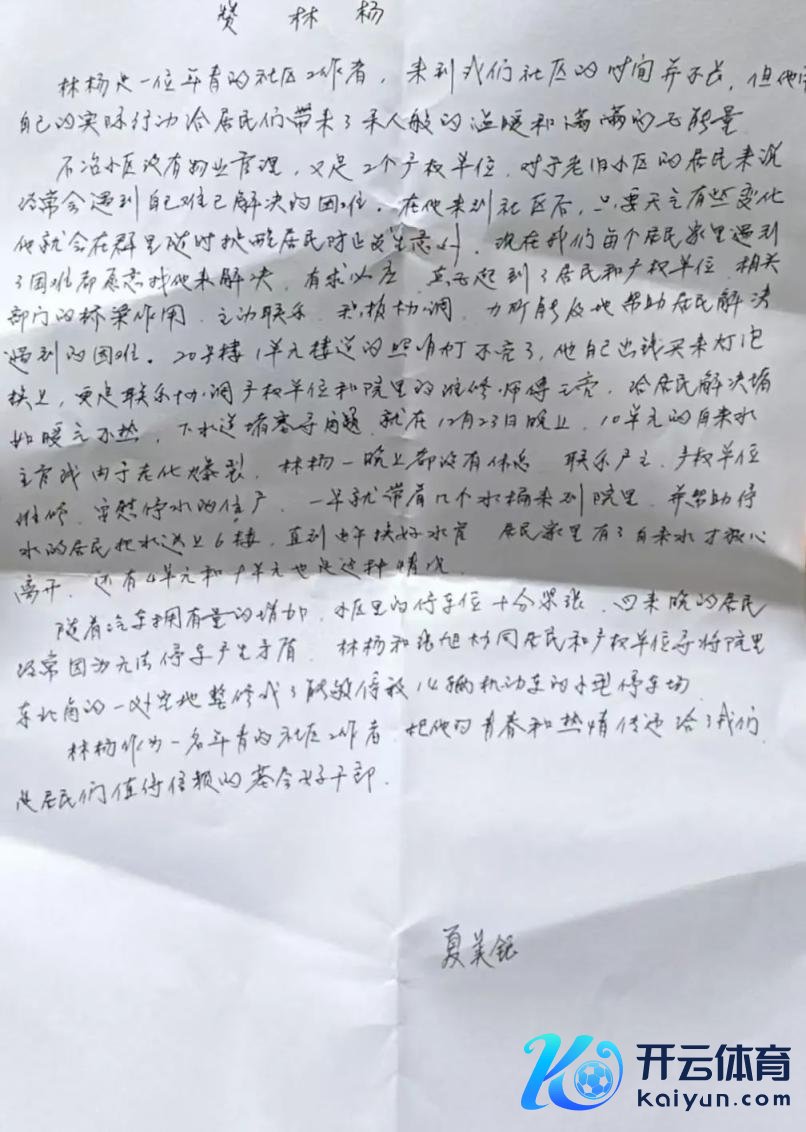 赞林杨
林杨是一位年青的社区工作者，来到我们社区的时间并不长，但他用
自己的实际行动给居民们带来了亲人般的温暖和满满的正能量
石冶小区没有物业管理，又是2个产权单位，对于老旧小区的居民来说
经常会遇到自己难已解决的困难。在他来到社区后，只要天气有些变化
他就会在群里随时提醒居民防止发生意外，现在我们每个居民家里遇到
了困难都愿意找他来解决，有求必应，真正起到了居民和产权单位、相关
部门的桥梁作用、主动联系、积极协调，力所能及地帮助居民解决
遇到的困难。20号楼1单元楼道的照明灯不亮了，他自己出钱买来灯泡
换上，更是联系协调产权单位和院里的维修师傅，给居民解决诸
如暖气不热，下水道堵塞等问题，就在12月23日晚上，10单元的自来水
主管线由于老化爆裂，林杨一晚上都没有休息，联系产主、产权单位
维修，突然停水的住户，一早就带着几个水桶来到院里，并帮助停
水的居民把水送上6楼，直到中午换好水管，居民家里有了自来水才放心
离开，还有4单元和9单元也是这种情况。
随着汽车拥有量的增加，小区里的停车位十分紧张，回来晚的居民
经常因为无法停车产生矛盾，林杨和张旭协同居民和产权单位等将院里
东北角的一处空地整修成了能够停放14辆机动车的小型停车场
林杨作为一名年青的社区工作者，把他的青春和热情传递给了我们
是居民们值得信赖的基层好干部.
夏美银
开云体育
kaiyun.com